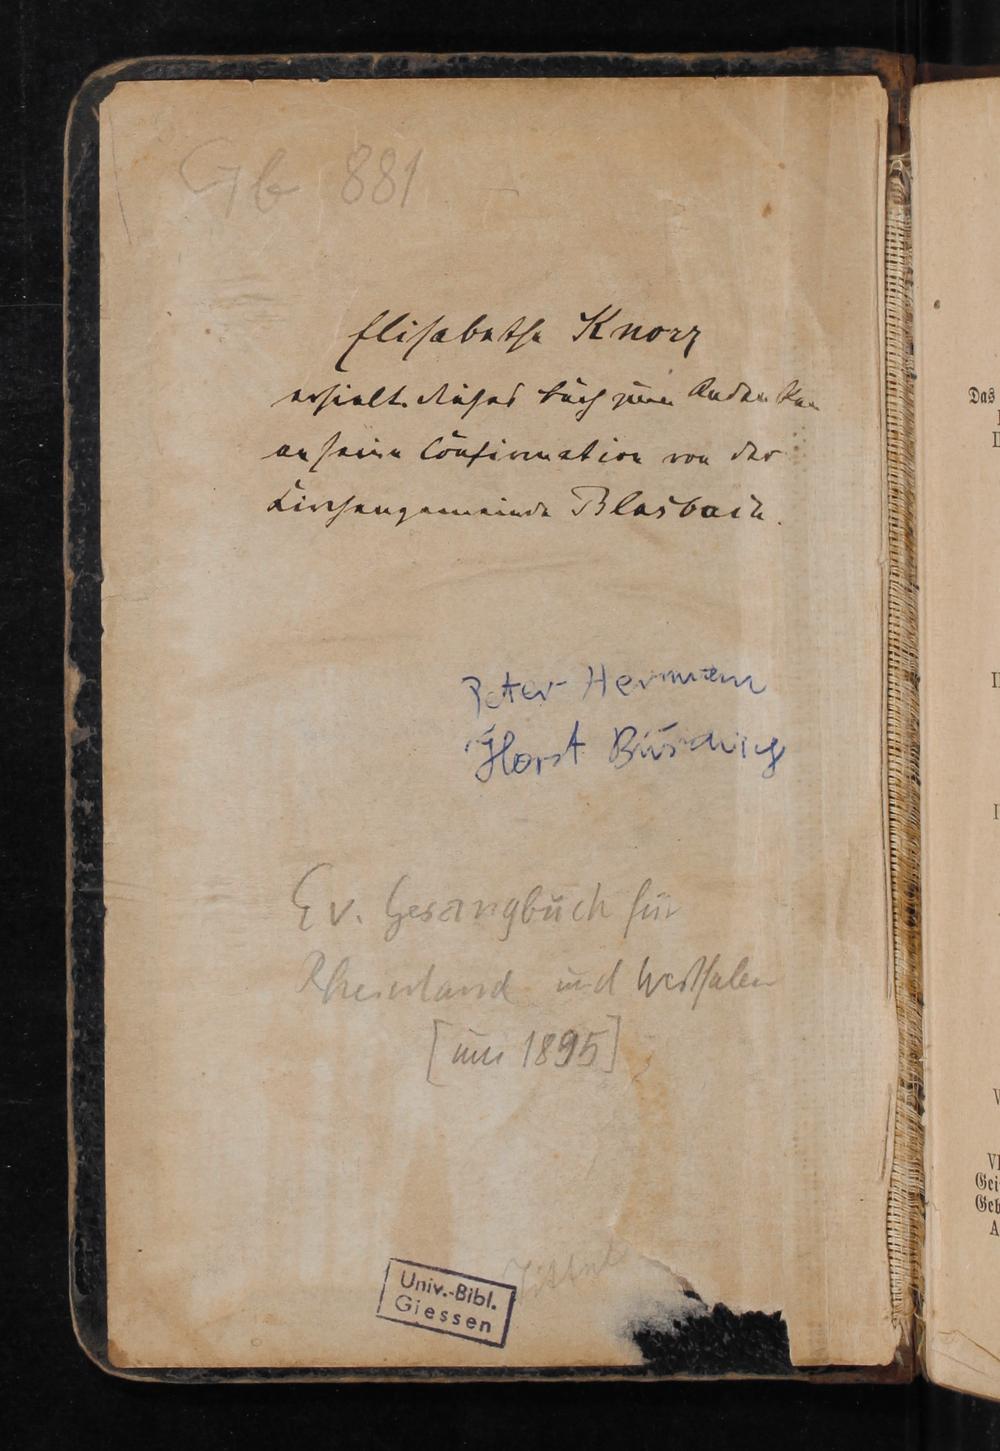 Gb 881
Elisabethe Knorz
erhielt dieses Buch zum Andenken
an seine Confirmation von der
Kirchengemeinde Blasbach.
Peter Hermann
Horst Büsching
Ev. Gesangbuch für
Rheinland und Westfalen
[um 1895]
Univ.-Bibl.
Giessen
Das